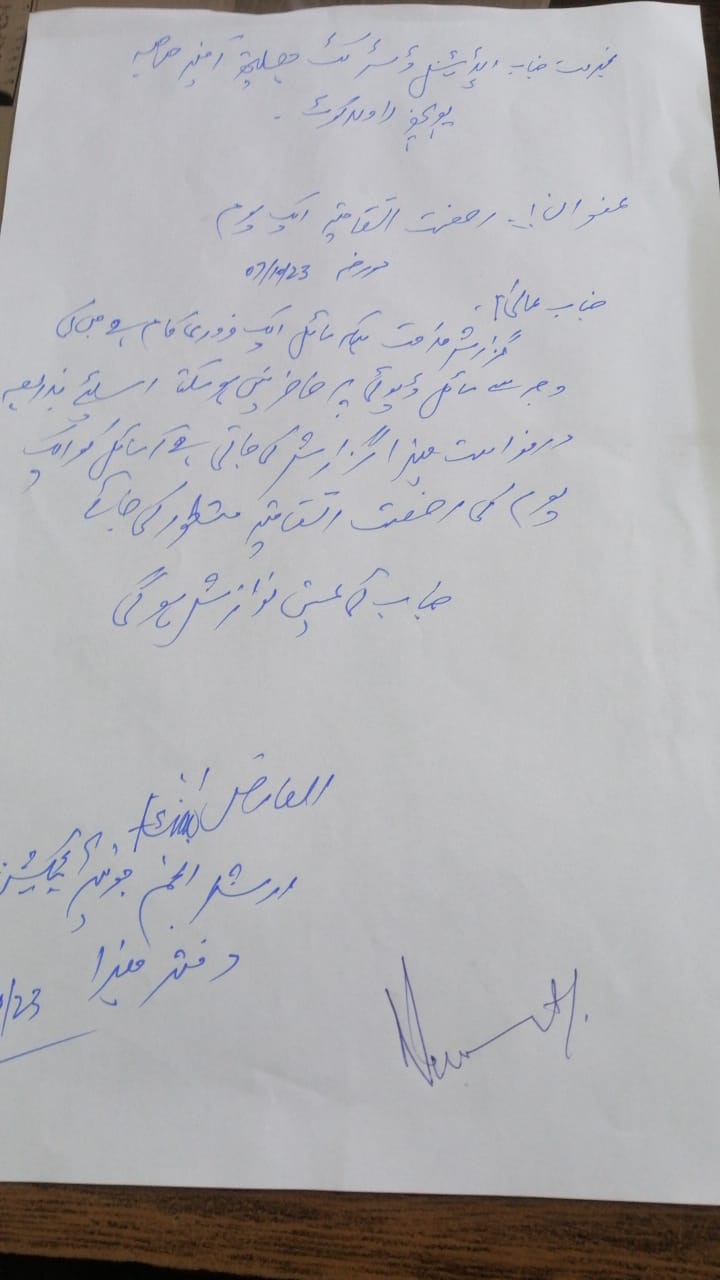 بخدمت جناب ایڈیشنل ڈسٹرکٹ ہیلتھ آفیسر صاحبہ
عنوان :- رخصت اتفاقیہ ایک یوم
مورخہ 07/10/23
جناب عالی!
گزارش خدمت ہیکہ سائل ایک ضروری کام ہے جس کی
وجہ سے سائل ڈیوٹی پر حاضر نہیں ہوسکتا اسلئے بذریعہ
درخواست ہذا گزارش کی جاتی ہے کہ سائل کو ایک
یوم کی رخصت اتفاقیہ منظور کی جائے
جناب کی عین نوازش ہوگی
العارض
دفتر ہذا
/23